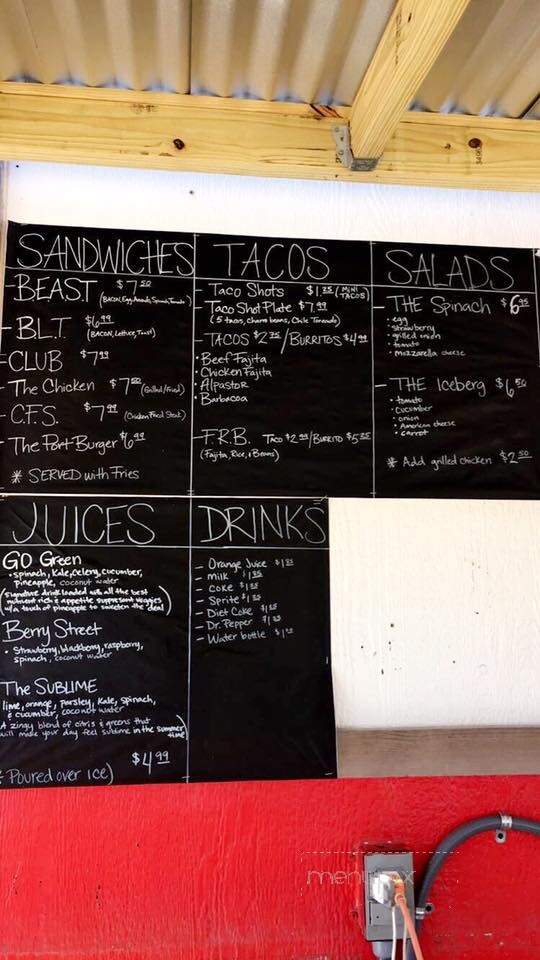 SANDWICHES
BEAST $7.50 (BACON, Egg, Avocado, Spinach, Tomato)
- BLT $6.99 (BACON, Lettuce, Toast)
- CLUB $7.99
- The Chicken $7.50 (Grilled/Fried)
- C.F.S. $7.99 (Chicken Fried Steak)
- The Port Burger $6.99
* SERVED with Fries
TACOS
- Taco Shots $1.25 (MINI TACOS)
Taco Shot Plate $7.99
(5 tacos, charro beans, Chile Toreado)
- TACOS $2.75/BURRITOS $4.99
• Beef Fajita
• Chicken Fajita
• Alpastor
• Barbacoa
- F.R.B. TACO $2.99/BURRITO $5.25
(Fajita, Rice, & Beans)
SALADS
- THE Spinach $6.95
• egg
• strawberry
• grilled onion
• tomato
• Mozzarella cheese
- THE Iceberg $6.50
• tomato
• cucumber
• onion
• American cheese
• carrot
* Add grilled chicken $2.50
JUICES
GO Green
• spinach, Kale, celery, cucumber,
pineapple, coconut water
(signature drink loaded with all the best
nutrient rich & appetite suppressant veggies
w/a touch of pineapple to sweeten the deal)
Berry Street
• Strawberry, blackberry, raspberry,
spinach, coconut water
The SUBLIME
lime, orange, parsley, Kale, spinach,
& cucumber, coconut water
A zingy blend of citris & greens that
will make your day feel sublime in the summer
time)
$4.99
* Poured over ice)
DRINKS
- Orange Juice
- Milk
- Coke
- Sprite
- Diet Coke
- Dr. Pepper
- Water bottle
menupix